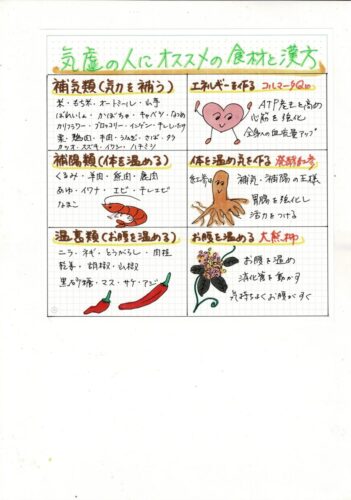 気虚の人にオススメの食材と漢方
補気類(気力を補う)
米・もち米・オートミール・山芋
ばれいしょ・かぼちゃ・キャベツ・なつめ
カリフラワー・ブロッコリー・インゲン・干ししいたけ
栗・鶏肉・牛肉・うなぎ・さば・タラ
カツオ・スズキ・イワシ・ハチミツ
エネルギーを作る コルマータQ10
ATP産生を高め
心筋を強化し
全身への血流量アップ
補陽類(体を温める)
くるみ・羊肉・熊肉・鹿肉
あゆ・イワナ・エビ・干しエビ
なまこ
体を温め気を作る 発酵紅参
紅参は 補気・補陽の王様
胃腸を強化し
活力をつける
温裏類(お腹を温める)
ニラ・ネギ・とうがらし・肉桂
乾姜・胡椒・山椒
黒砂糖・マス・サケ・アジ
お腹を温める 大熊柳
お腹を温め
消化管を動かす
気持ちよくお腹がすく